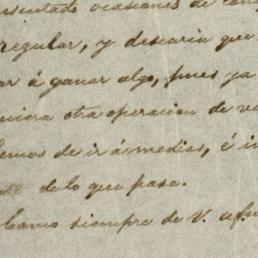 sentado ocasiones de com
regular, y desearia que
ar á ganar algo, pues ya
otra operacion de ve
emos de ir á medias, é in
de lo que pasa.
Como siempre de V. af.